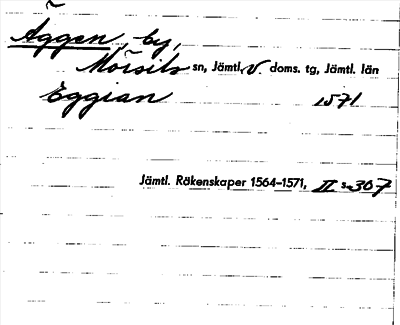 Äggen, by,
Mörsils sn, Jämtl. V. doms. tg, Jämtl. län
Eggian 1571
Jämtl. Räkenskaper 1564–1571, II s. 307